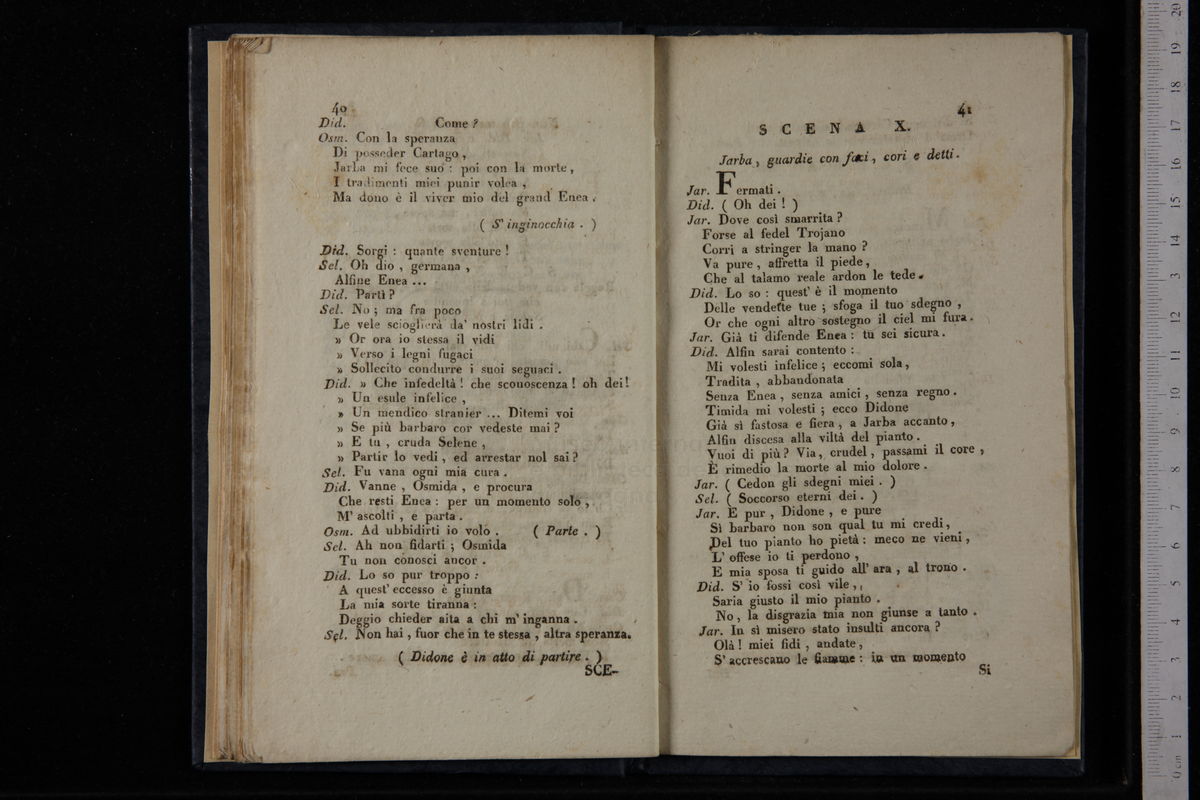 40
Did. Come ?
Osm. Con la speranza
Di posseder Cartago ,
Jarba mi fece suo : poi con la morte ,
I tradimenti miei punir volea ,
Ma dono è il viver mio del grand' Enea .
( S' inginocchia . )
Did. Sorgi : quante sventure !
Sel. Oh dio , germana ,
Alfine Enea ...
Did. Partì ?
Sel. No ; ma fra poco
Le vele scioglierà da' nostri lidi .
» Or ora io stessa il vidi
» Verso i legni fugaci
» Sollecito condurre i suoi seguaci .
Did. » Che infedeltà ! che sconoscenza ! oh dei !
» Un esule infelice ,
» Un mendico stranier ... Ditemi voi
» Se più barbaro cor vedeste mai ?
» E tu , cruda Selene ,
» Partir lo vedi , ed arrestar nol sai ?
Sel. Fu vana ogni mia cura .
Did. Vanne , Osmida , e procura
Che resti Enea : per un momento solo ,
M' ascolti , e parta .
Osm. Ad ubbidirti io volo . ( Parte . )
Sel. Ah non fidarti ; Osmida
Tu non conosci ancor .
Did. Lo so pur troppo :
A quest' eccesso è giunta
La mia sorte tiranna :
Deggio chieder aita a chi m' inganna .
Sel. Non hai , fuor che in te stessa , altra speranza.
( Didone è in atto di partire . )
SCE-
41
SCENA X.
Jarba , guardie con faci , cori e detti .
Jar. Fermati .
Did. ( Oh dei ! )
Jar. Dove così smarrita ?
Forse al fedel Trojano
Corri a stringer la mano ?
Va pure , affretta il piede ,
Che al talamo reale ardon le tede .
Did. Lo so : quest' è il momento
Delle vendette tue ; sfoga il tuo sdegno ,
Or che ogni altro sostegno il ciel mi fura .
Jar. Già ti difende Enea : tu sei sicura .
Did. Alfin sarai contento :
Mi volesti infelice ; eccomi sola ,
Tradita , abbandonata
Senza Enea , senza amici , senza regno .
Timida mi volesti ; ecco Didone
Già sì fastosa e fiera , a Jarba accanto ,
Alfin discesa alla viltà del pianto .
Vuoi di più ? Via , crudel , passami il core ,
È rimedio la morte al mio dolore .
Jar. ( Cedon gli sdegni miei . )
Sel. ( Soccorso eterni dei . )
Jar. E pur , Didone , e pure
Sì barbaro non son qual tu mi credi ,
Del tuo pianto ho pietà : meco ne vieni ,
L' offese io ti perdono ,
E mia sposa ti guido all' ara , al trono .
Did. S' io fossi così vile ,
Saria giusto il mio pianto .
No , la disgrazia mia non giunse a tanto .
Jar. In sì misero stato insulti ancora ?
Olà ! miei fidi , andate ,
S' accrescano le fiamme : in un momento
Si